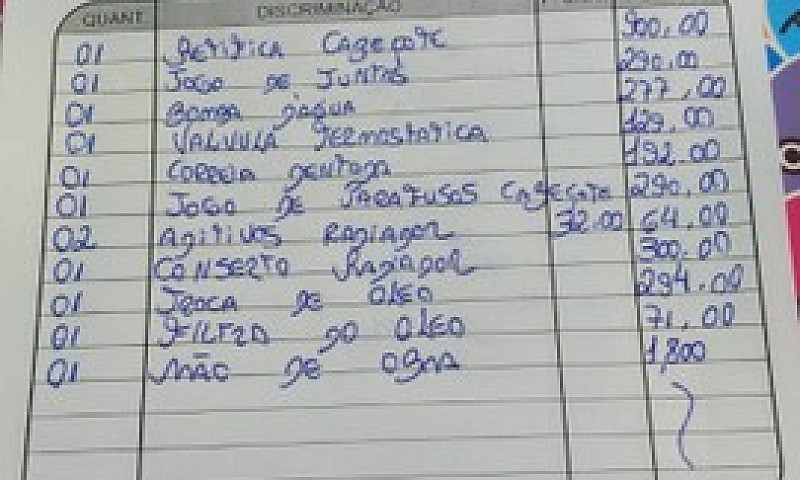 QUANT. DISCRIMINAÇÃO
01 RETIFICA CABEÇOTE 900,00
01 JOGO DE JUNTAS 290,00
01 BOMBA D'AGUA 277,00
01 VALVULA TERMOSTATICA 129,00
01 CORREIA DENTADA 192,00
01 JOGO DE PARAFUSOS CABEÇOTE 290,00
02 ADITIVOS RADIADOR 32,00 64,00
01 CONSERTO RADIADOR 300,00
01 TROCA DE OLEO 294,00
01 FILTRO DO OLEO 71,00
01 MÃO DE OBRA 1,800